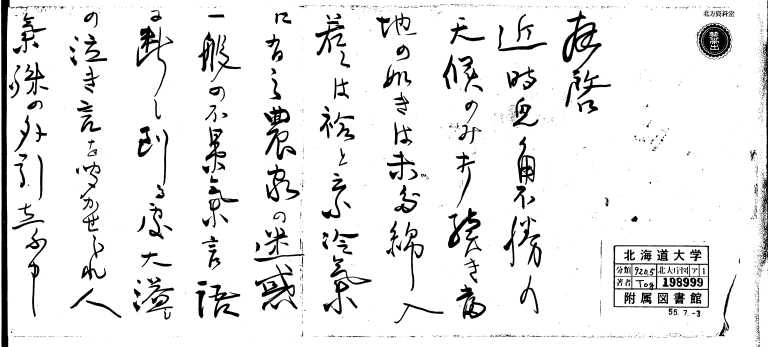 拝啓
近時兎角不勝の
天候のみ打続き当
地の如きは未だ綿入
若くは袷と云冷気
にある農家の迷惑
一般の不景気言語
に断し到る處大溢し
の泣き言を聞かせられ人
気殊の外引立不申
北方資料室
禁帯出
北海道大学
分類 920.5 北大庁刊 ア 1
著者 Tog 198999
附属図書館
55. 7. -3